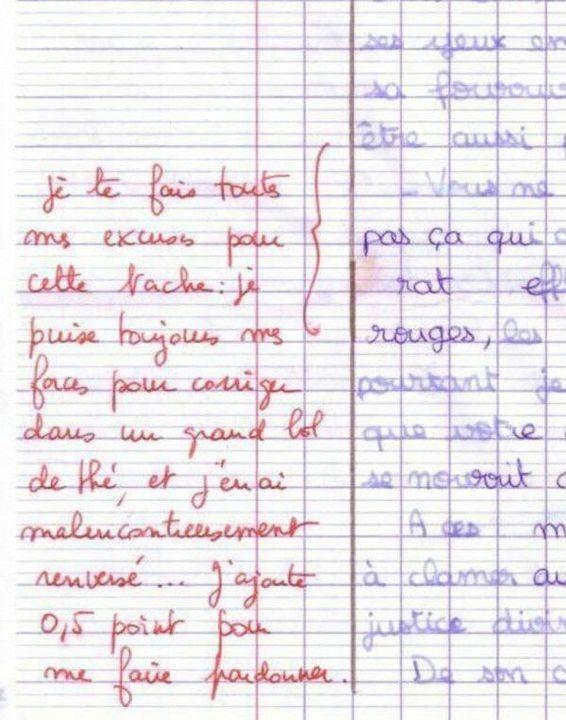 je te fais toutes
mes excuses pour
cette tache : je
puise toujours mes
forces pour corriger
dans un grand bol
de thé, et j'en ai
malencontreusement
renversé... j'ajoute
0,5 point pour
me faire pardonner.
ses yeux en
sa
être aussi
- Vous ne
pas ça qui
rat eff
rouges, les
pourtant je
que votre
se nourrit
A ces m
à clamer au
justice divi
De son